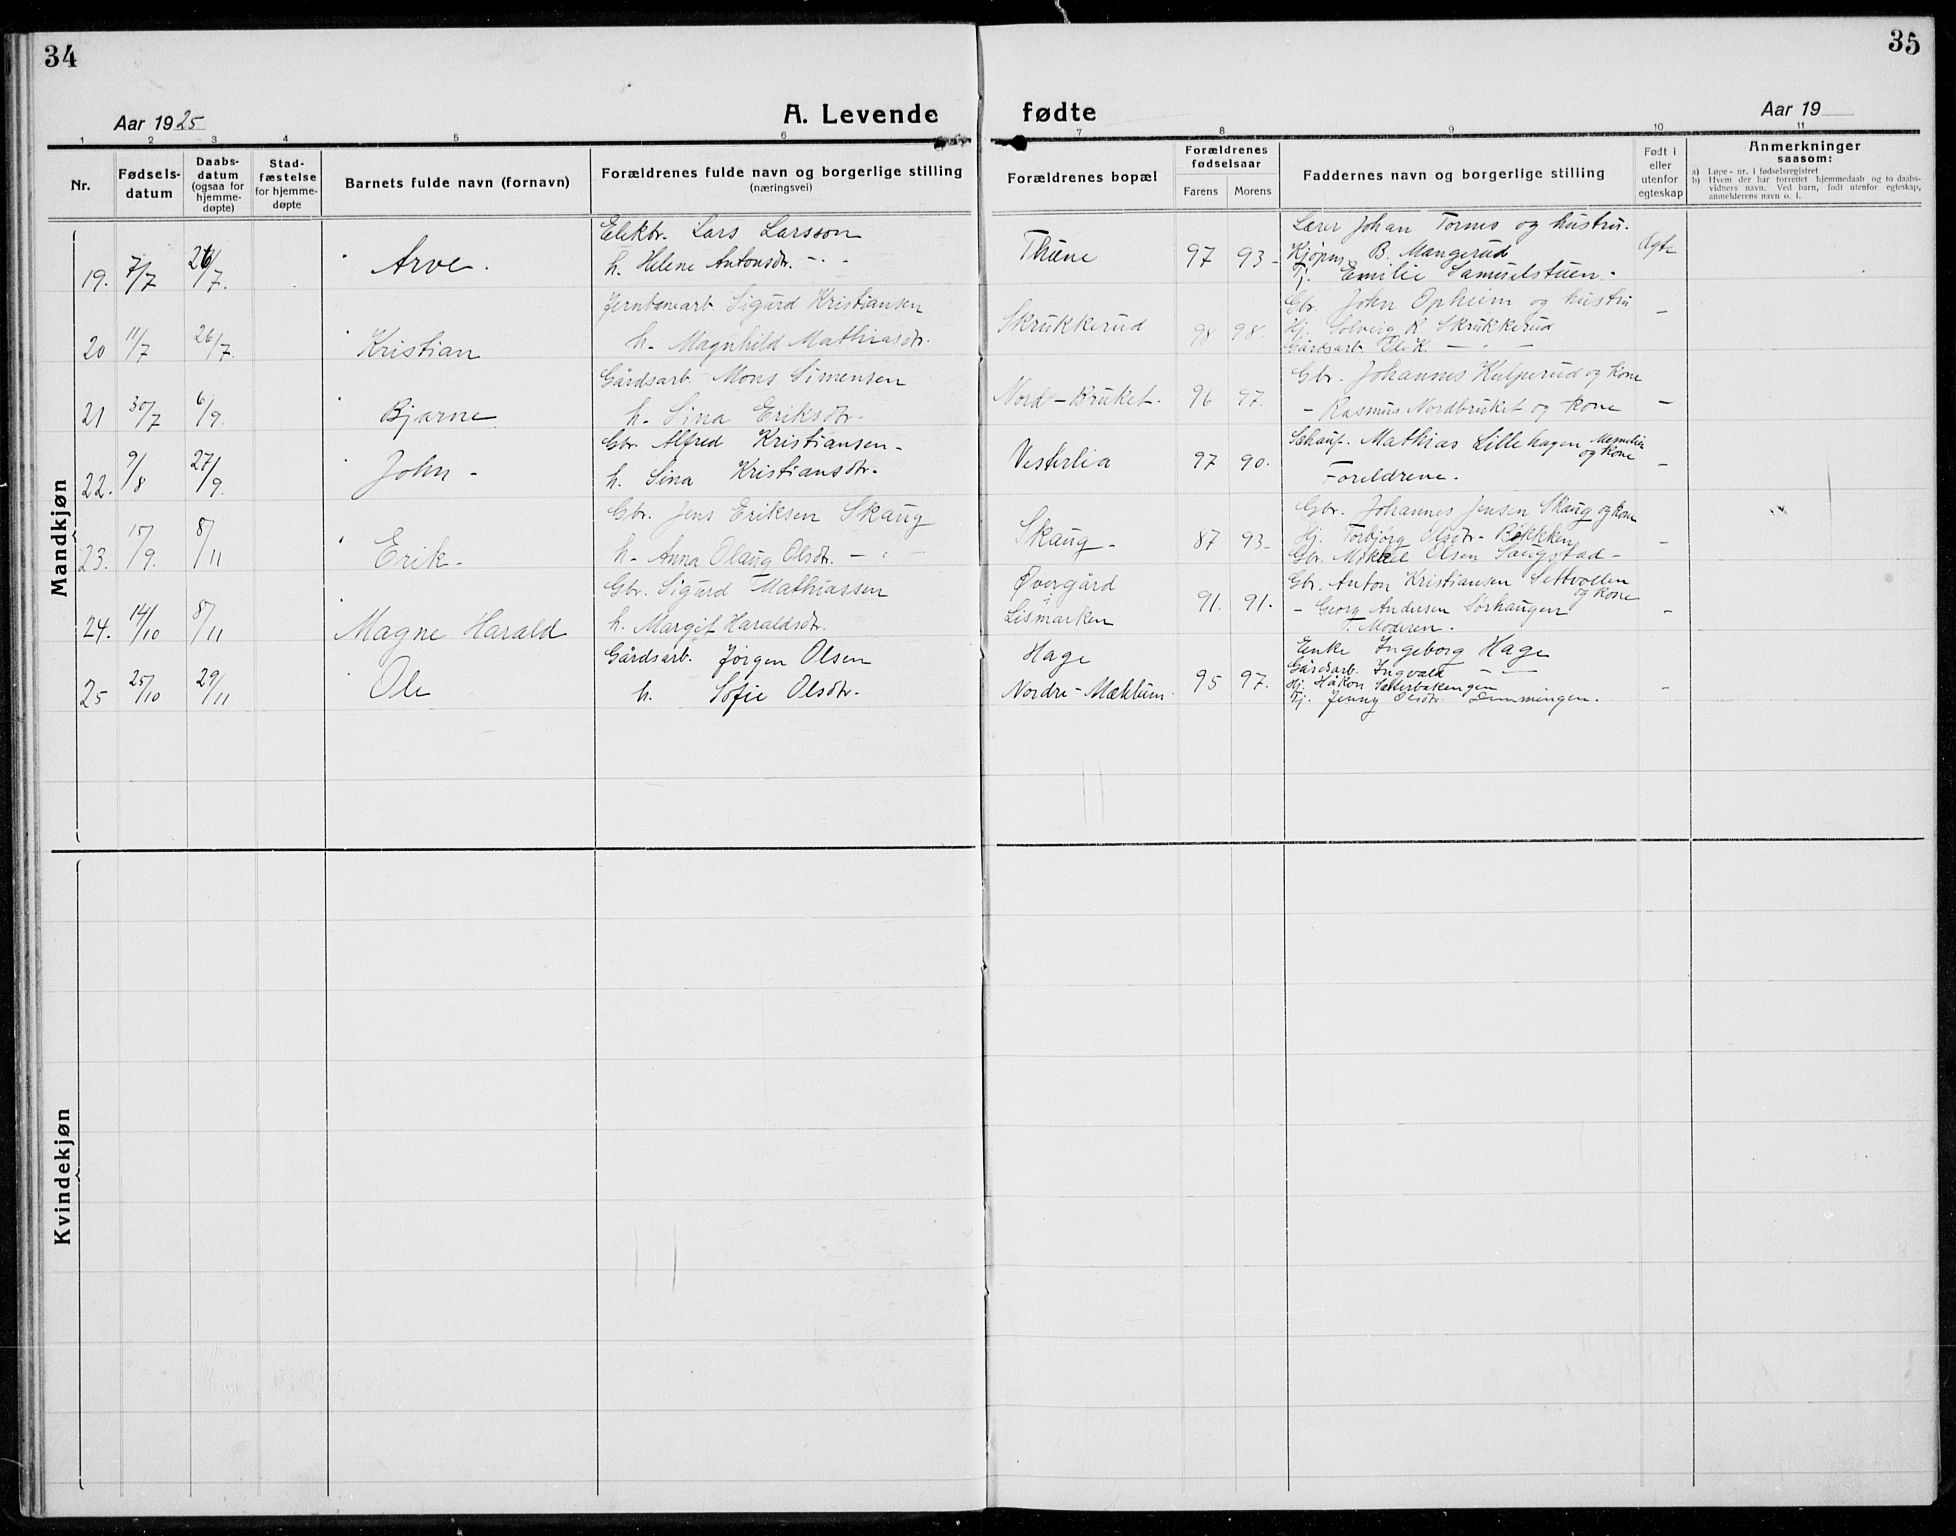 34
35
Aar 1925
A. Levende fødte
Aar 19
1 2 3 4 5 6 7 8 9 10 11
Nr.
Fødsels-
datum
Daabs-
datum
(ogsaa for
hjemme-
døpte)
Stad-
fæstelse
for hjemme-
døpte
Barnets fulde navn (fornavn)
Forældrenes fulde navn og borgerlige stilling
(næringsvei)
Forældrenes bopæl
Forældrenes
fødselsaar
Farens Morens
Faddernes navn og borgerlige stilling
Født i
eller
utenfor
egteskap
Anmerkninger
saasom:
a) Løpe-nr. i fødselsregistret
b) Hvem der har forrettet hjemmedaab og to daabs-
vidners navn. Ved barn, født utenfor egteskap,
anmelderens navn o. l.
Mandkjøn
19. 7/7 26/7. Arve.
Elektr. Lars Larsson
h. Helene Antonsdr. - " -
Thune 97 93 -
Lærer Johan Tormo og hustru.
Kjøpm. B. Mangerud
Tj. Emilie Samuelstuen.
Ægte
20 11/7 26/7. Kristian
Jernbanearb. Sigurd Kristiansen
h. Magnhild Mathiasdr.
Skrukkerud 98 98.
Gbr. John Opheim og hustru
Hj. Solveig K. Skrukkerud
Gårdsarb. Ole K. - " -
-
21 30/7 6/9. Bjarne
Gårdsarb. Mons Simensen
h. Sina Eriksdr.
Nord-Bruket. 96 97.
Gbr. Johannes Kulperud og kone
- Rasmus Nordbruket og kone
-
22. 9/8 27/9. John -
Gbr. Alfred Kristiansen -
h. Sina Kristiansdr.
Vesterlia 97 90.
Mathias Lillehagen
og kone
Foreldrene.
-
23. 15/9. 8/11 Erik.
Gbr. Jens Eriksen Skaug
h. Anna Olaug Olsdr. - " -
Skaug - 87 93 -
Gbr. Johannes Jensen Skaug og kone
Hj. Torbjørg Olsdr. Bakken
Gbr. Mikael Olsen Saugstad -
-
24. 14/10 8/11 Magne Harald
Gbr. Sigurd Mathiassen
h. Margit Haraldsdr.
Øvergård
Lismarken
91. 91.
Gbr. Anton Kristiansen Settvollen
og kone
- Georg Andersen Sørhaugen
Moderen.
-
25 25/10 29/11 Ole
Gårdsarb. Jørgen Olsen
h. Sofie Olsdr.
Hage
Nordre-Mæhlum.
95 97.
Enke Ingeborg Hage
Gårdsarb. Ingvald - " -
Hj. Håkon Sætterbakengen
Tj. Jenny Olsdr. Demmingen.
-
Kvindekjøn